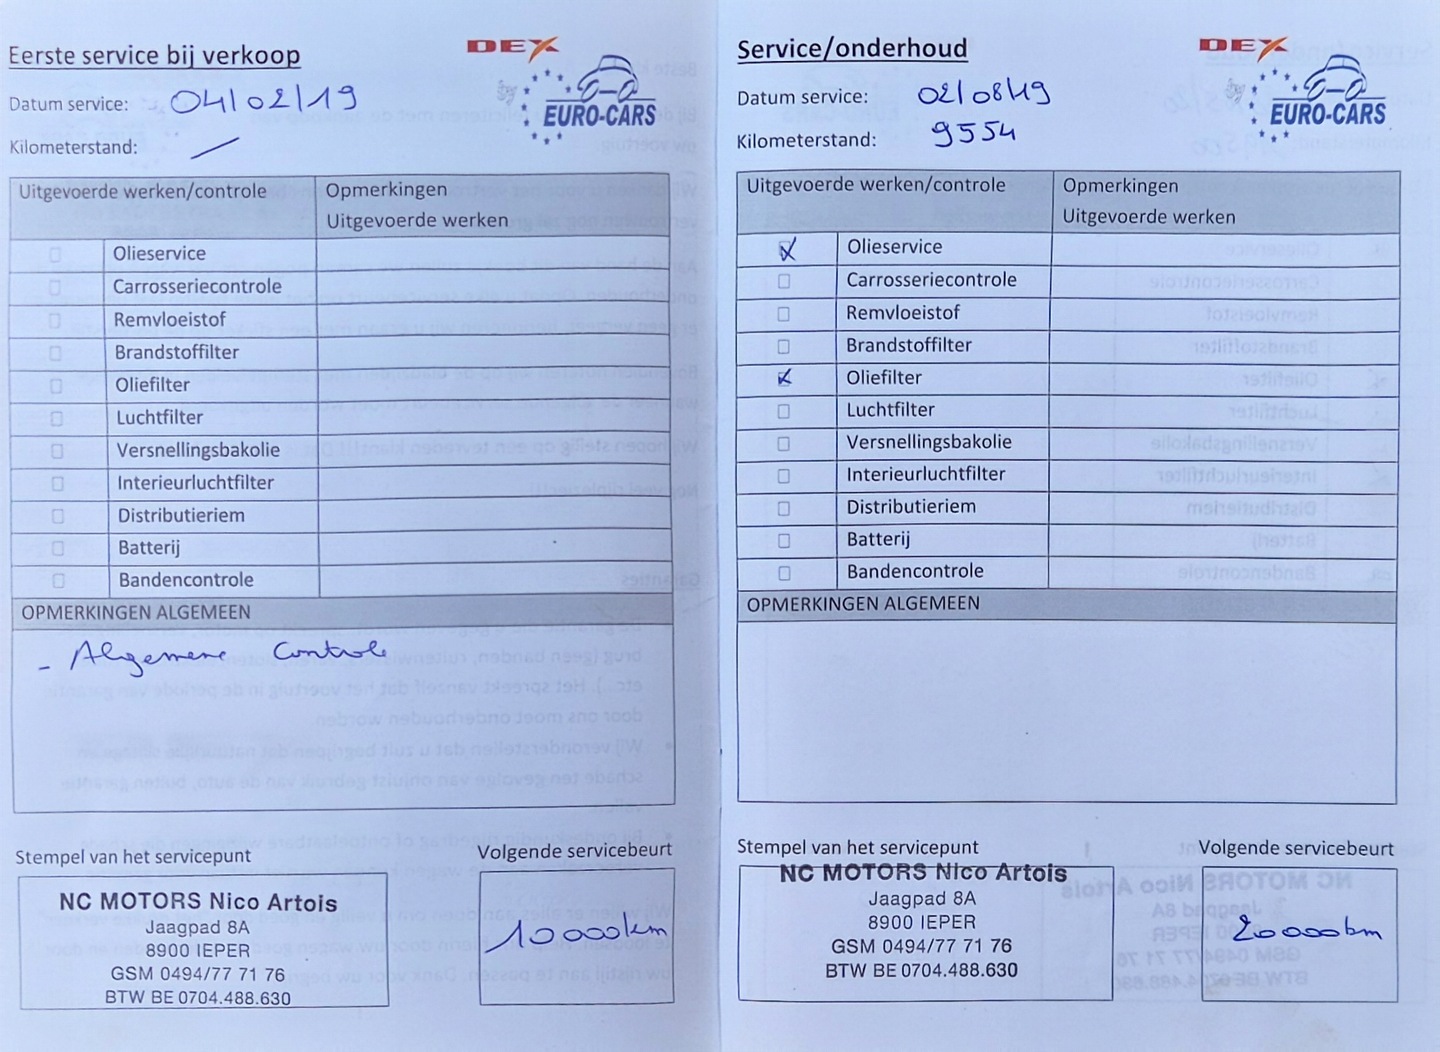 Eerste service bij verkoop
DEX
EURO-CARS
Datum service: 04/02/19
Kilometerstand: /
Uitgevoerde werken/controle
Opmerkingen
Uitgevoerde werken
Olieservice
Carrosseriecontrole
Remvloeistof
Brandstoffilter
Oliefilter
Luchtfilter
Versnellingsbakolie
Interieurluchtfilter
Distributieriem
Batterij
Bandencontrole
OPMERKINGEN ALGEMEEN
- Algemene Controle
Stempel van het servicepunt
Volgende servicebeurt
NC MOTORS Nico Artois
Jaagpad 8A
8900 IEPER
GSM 0494/77 71 76
BTW BE 0704.488.630
10000km
Service/onderhoud
DEX
EURO-CARS
Datum service: 02/08/19
Kilometerstand: 9554
Uitgevoerde werken/controle
Opmerkingen
Uitgevoerde werken
Olieservice
Carrosseriecontrole
Remvloeistof
Brandstoffilter
Oliefilter
Luchtfilter
Versnellingsbakolie
Interieurluchtfilter
Distributieriem
Batterij
Bandencontrole
OPMERKINGEN ALGEMEEN
Stempel van het servicepunt
Volgende servicebeurt
NC MOTORS Nico Artois
Jaagpad 8A
8900 IEPER
GSM 0494/77 71 76
BTW BE 0704.488.630
20000km